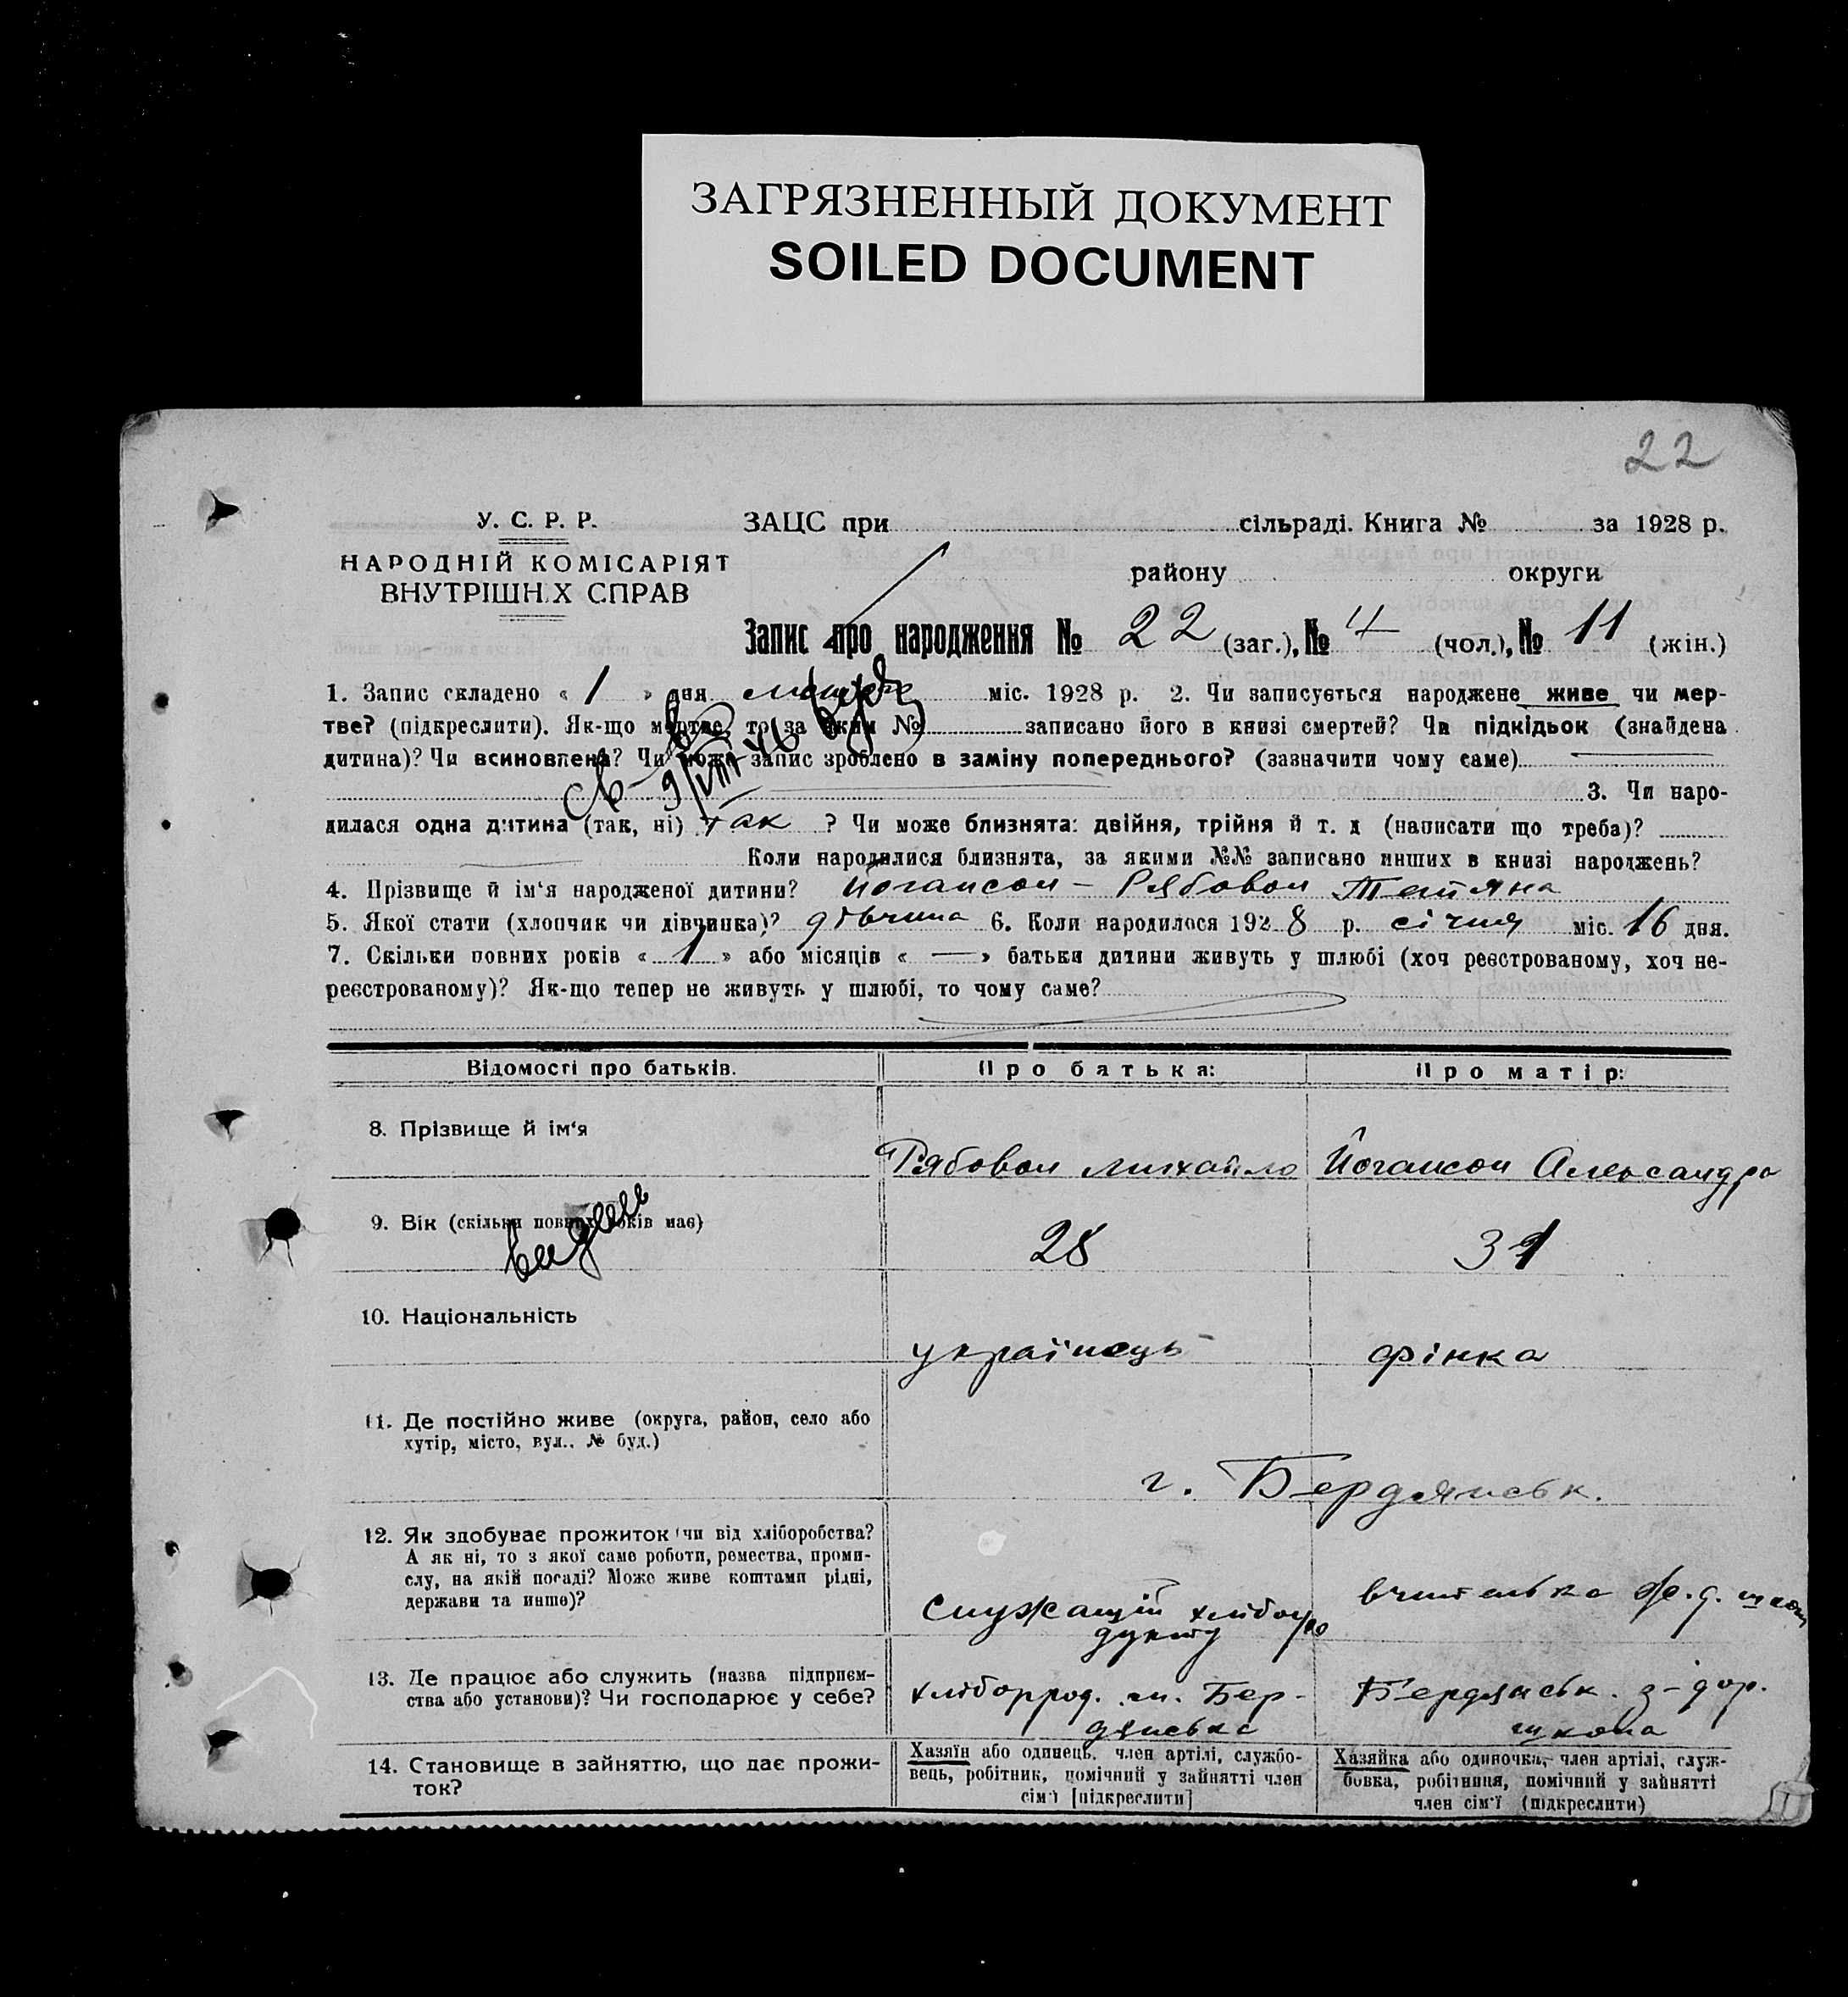 ЗАГРЯЗНЕННЫЙ ДОКУМЕНТ
SOILED DOCUMENT
22
У. С. Р. Р.
НАРОДНІЙ КОМІСАРІЯТ
ВНУТРІШНІХ СПРАВ
ЗАЦС при сільраді. Книга № за 1928 р.
району округи
Запис про народження № 22 (заг.), № 4 (чол.), № 11 (жін.)
1. Запис складено « 1 » дня міс. 1928 р. 2. Чи записується народжене живе чи мер-
тве? (підкреслити). Як-що мертве, то за яким № записано його в книзі смертей? Чи підкідьок (знайдена
дитина)? Чи всиновлена? Чи може запис зроблено в заміну попереднього? (зазначити чому саме)
9/VIII 46
3. Чи наро-
дилася одна дитина (так, ні) так ? Чи може близнята: двійня, трійня й т. д (написати що треба)?
Коли народилися близнята, за якими №№ записано инших в книзі народжень?
4. Прізвище й ім'я народженої дитини? Йогансон - Рябовол Тетяна
5. Якої стати (хлопчик чи дівчинка)? дівчина 6. Коли народилося 1928 р. січня міс. 16 дня.
7. Скільки повних років « 1 » або місяців « — » батьки дитини живуть у шлюбі (хоч реєстрованому, хоч не-
реєстрованому)? Як-що тепер не живуть у шлюбі, то чому саме?
Відомості про батьків. Про батька: Про матір:
8. Прізвище й ім'я Рябовол Михайло Йогансон Александра
9. Вік (скільки повних років має) 28 31
10. Національність українець фінка
11. Де постійно живе (округа, район, село або
хутір, місто, вул.. № буд.)
г. Бердянськ.
12. Як здобуває прожиток чи від хліборобства?
А як ні, то з якої саме роботи, ремества, проми-
слу, на якій посаді? Може живе коштами рідні,
держави та инше)?
служащій хлібопро
дукту
вчителька
13. Де працює або служить (назва підприєм-
ства або установи)? Чи господарює у себе?
хлібопрод. м. Бер-
дянська
Бердянськ. з-дор.
школа
14. Становище в зайняттю, що дає прожи-
ток?
Хазяїн або одинець. член артілі, службо-
вець, робітник, помічний у зайнятті член
сім'ї [підкреслити]
Хазяйка або одиночка, член артілі, служ-
бовка, робітниця, помічний у зайнятті
член сім'ї (підкреслити)